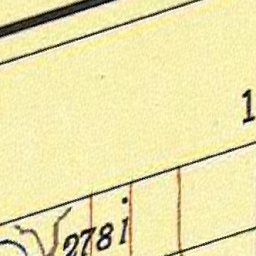 1
278i